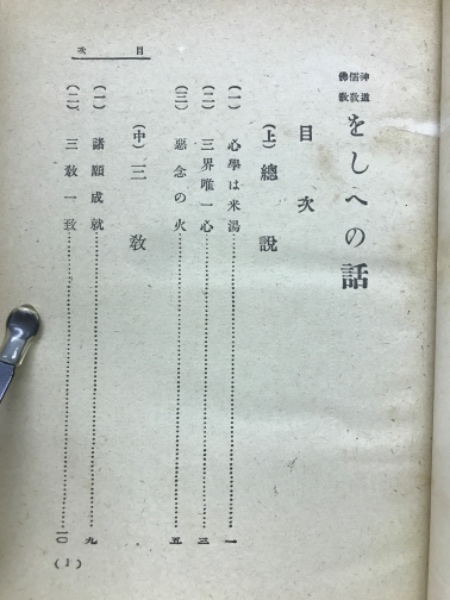 目次
神道
儒教
佛教
をしへの話
目次
(上) 總說
(一) 心學は米湯 一
(二) 三界唯一心 三
(三) 惡念の火 五
(中) 三教
(一) 諸願成就 九
(二) 三教一致 一〇
(1)